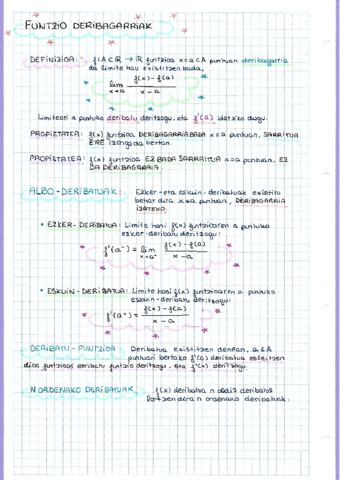 FUNTZIO DERIBAGARRIAK
DEFINIZIOA: f: A ⊂ ℝ → ℝ funtzioa x=a ∈ A puntuan deribagarria
da limite hau existitzen bada,
lim x→a f(x) - f(a) / x - a
Limiteari a puntuko deribatu deritzogu, eta f'(a) idatziko dugu.
PROPIETATEA: f(x) funtzioa DERIBAGARRIA BADA x=a puntuan, JARRAITUA
ERE izango da bertan.
PROPIETATEA: f(x) funtzioa EZ BADA JARRAITUA x=a puntuan, EZ
DA DERIBAGARRIA.
ALBO-DERIBATUAK: Ezker-eta eskuin-deribatuak existitu
behar dira x=a puntuan, DERIBAGARRIA
IZATEKO.
• EZKER-DERIBATUA: Limite honi f(x) funtzioaren a puntuko
ezker-deribatu deritzogu:
f'(a⁻) = lim x→a⁻ f(x) - f(a) / x - a
• ESKUIN-DERIBATUA: Limite honi f(x) funtzioaren a puntuko
eskuin-deribatu deritzogu:
f'(a⁺) = f(x) - f(a) / x - a
DERIBATU-FUNTZIOA: Deribatua existitzen denean, a ∈ A
puntuan bertako f'(a) deribatua esleitzen
dion funtzioari deribatu funtzio deritzogu, eta f'(x) deritzogu.
N ORDENAKO DERIBATUAK f(x) deribatua n aldiz deribatuz
lortzen dira n ordenako deribatuak.